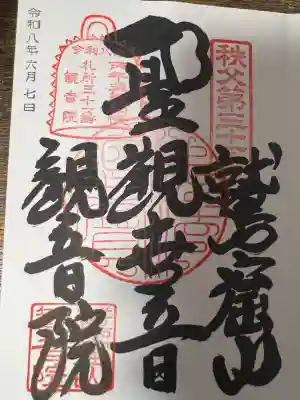 秩父第三十一
鷲窟山
聖観世音
観音院
令和八
丙午
札所三十一番
観音院
令和八年六月七日